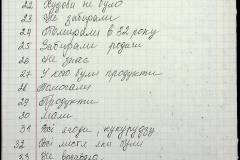 22 Худоби не було
23 Не забирали
24 Помирали в 32 року
25 Забирали родаги
26 Не знає
27 У кого були продукти
28 Помогали
29 Продукти
30 Мали
31 Всі ягоди, кукурудзу
32 Всі місця які були
33 Не